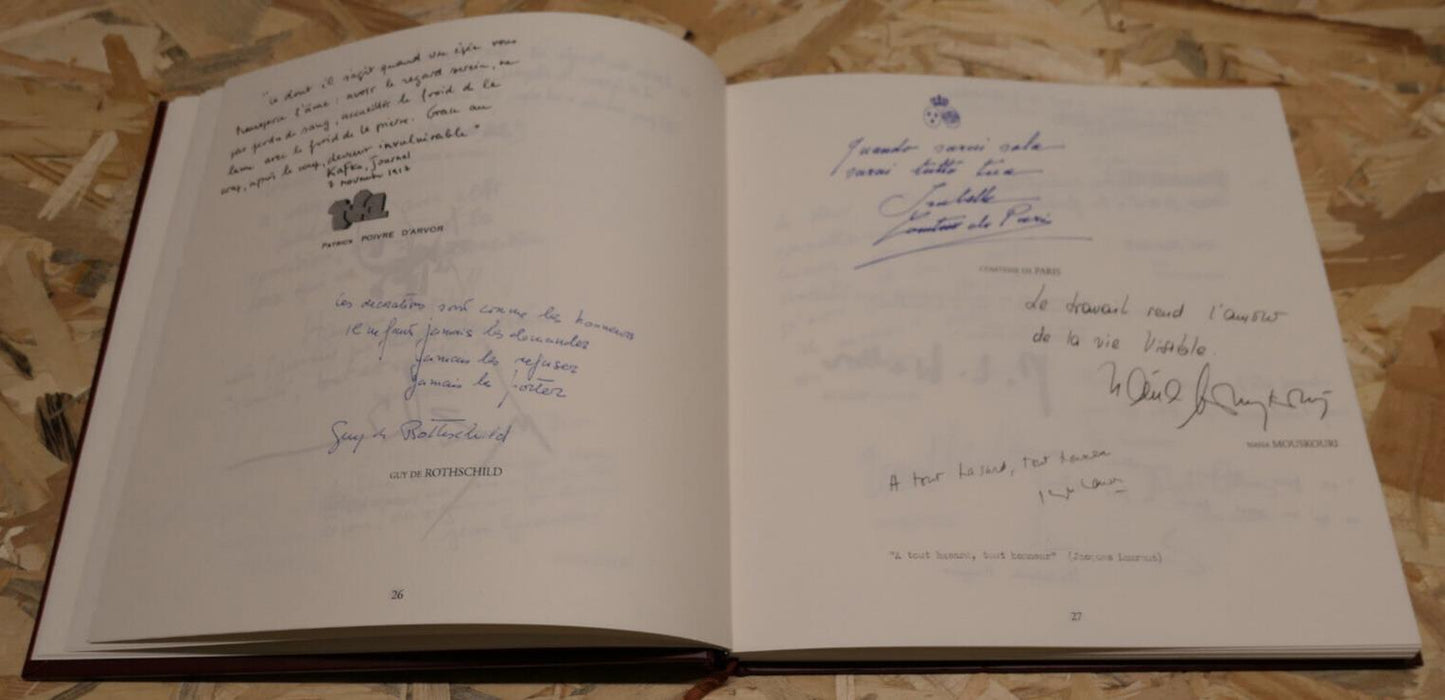 "Ce dont il s'agit quand une épée vous
transperce l'âme : avoir le regard serein, ne
pas perdre de sang, accueillir le froid de la
lame avec le froid de la pierre. Grâce au
coup, après le coup, devenir invulnérable"
Kafka, Journal
PATRICK POIVRE D'ARVOR
Les décorations sont comme les honneurs
il ne faut jamais les demander
jamais les refuser
jamais les porter
Guy de Rothschild
GUY DE ROTHSCHILD
26
Quando sarai sola
sarai tutta tua
Isabelle
Comtesse de Paris
COMTESSE DE PARIS
Le travail rend l'amour
de la vie visible.
NANA MOUSKOURI
A tout hasard, tout honneur
"A tout hasard, tout honneur" (Jacques Laurent)
27